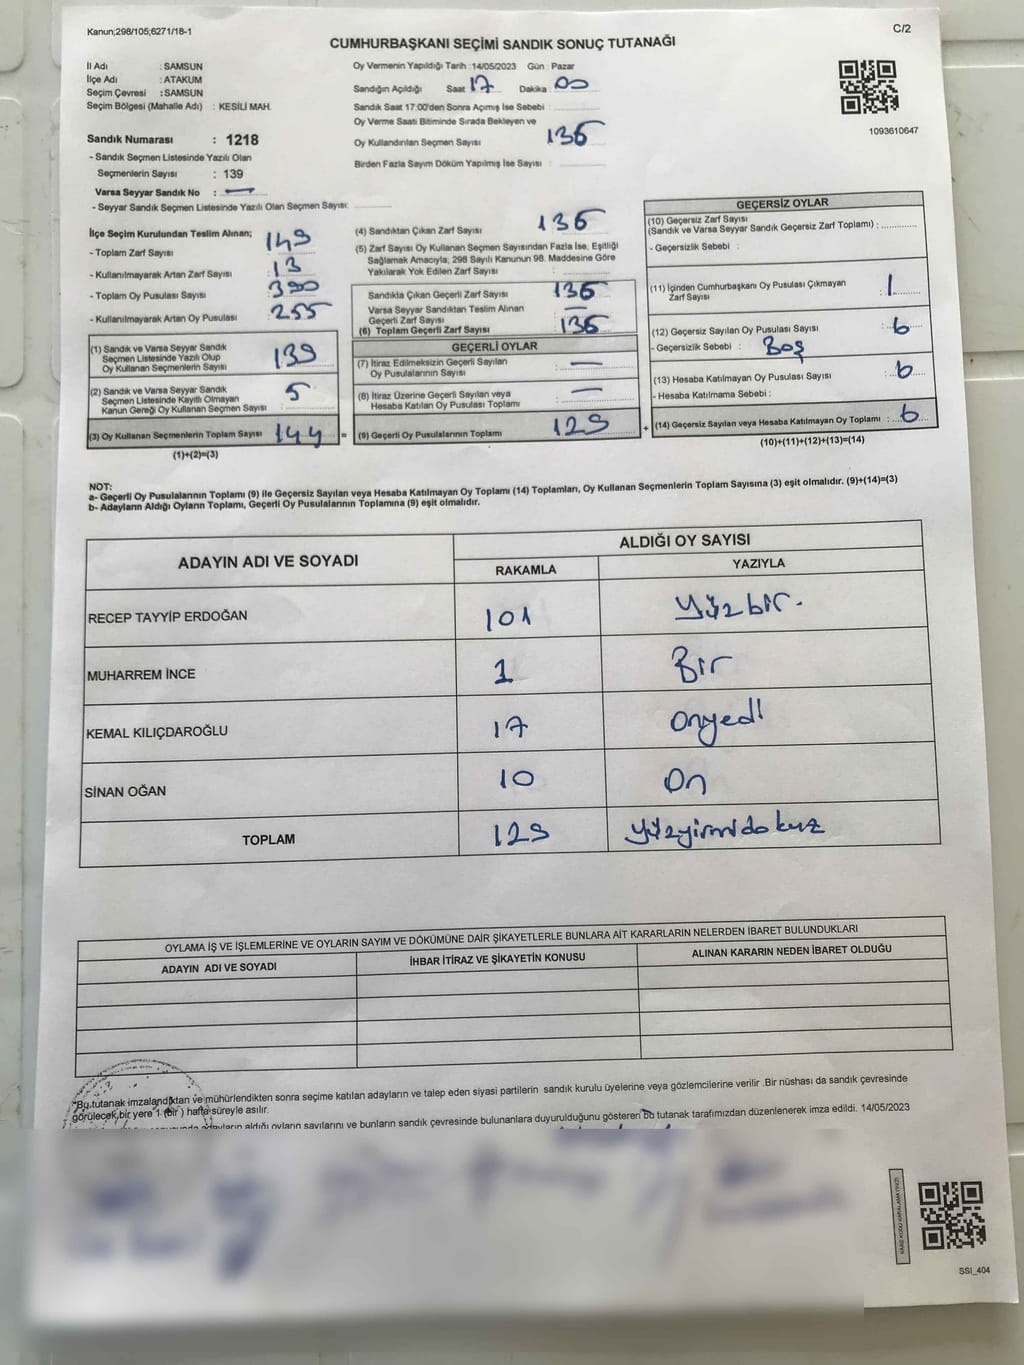 Kanun;298/105;6271/18-1
C/2
CUMHURBAŞKANI SEÇİMİ SANDIK SONUÇ TUTANAĞI
İl Adı : SAMSUN
İlçe Adı : ATAKUM
Seçim Çevresi : SAMSUN
Seçim Bölgesi (Mahalle Adı) : KESİLİ MAH.
Sandık Numarası : 1218
- Sandık Seçmen Listesinde Yazılı Olan
Seçmenlerin Sayısı : 139
Varsa Seyyar Sandık No : —
- Seyyar Sandık Seçmen Listesinde Yazılı Olan Seçmen Sayısı:
Oy Vermenin Yapıldığı Tarih :14/05/2023 Gün : Pazar
Sandığın Açıldığı Saat : 17 Dakika : 00
Sandık Saat 17:00'den Sonra Açımış İse Sebebi :
Oy Verme Saati Bitiminde Sırada Bekleyen ve
Oy Kullandırılan Seçmen Sayısı : 136
Birden Fazla Sayım Döküm Yapılmış İse Sayısı :
1093610647
İlçe Seçim Kurulundan Teslim Alınan;
- Toplam Zarf Sayısı : 149
- Kullanılmayarak Artan Zarf Sayısı : 13
- Toplam Oy Pusulası Sayısı : 390
- Kullanılmayarak Artan Oy Pusulası : 255
(1) Sandık ve Varsa Seyyar Sandık
Seçmen Listesinde Yazılı Olup
Oy Kullanan Seçmenlerin Sayısı : 139
(2) Sandık ve Varsa Seyyar Sandık
Seçmen Listesinde Kayıtlı Olmayan
Kanun Gereği Oy Kullanan Seçmen Sayısı : 5
(3) Oy Kullanan Seçmenlerin Toplam Sayısı : 144 =
(1)+(2)=(3)
(4) Sandıktan Çıkan Zarf Sayısı : 136
(5) Zarf Sayısı Oy Kullanan Seçmen Sayısından Fazla İse, Eşitliği
Sağlamak Amacıyla; 298 Sayılı Kanunun 98. Maddesine Göre
Yakılarak Yok Edilen Zarf Sayısı :
Sandıkta Çıkan Geçerli Zarf Sayısı : 136
Varsa Seyyar Sandıktan Teslim Alınan
Geçerli Zarf Sayısı :
(6) Toplam Geçerli Zarf Sayısı : 136
GEÇERLİ OYLAR
(7) İtiraz Edilmeksizin Geçerli Sayılan
Oy Pusulalarının Sayısı : —
(8) İtiraz Üzerine Geçerli Sayılan veya
Hesaba Katılan Oy Pusulası Toplamı : —
(9) Geçerli Oy Pusulalarının Toplamı : 129 +
GEÇERSİZ OYLAR
(10) Geçersiz Zarf Sayısı
(Sandık ve Varsa Seyyar Sandık Geçersiz Zarf Toplamı) :
- Geçersizlik Sebebi :
(11) İçinden Cumhurbaşkanı Oy Pusulası Çıkmayan
Zarf Sayısı : 1
(12) Geçersiz Sayılan Oy Pusulası Sayısı : 6
- Geçersizlik Sebebi : Boş
(13) Hesaba Katılmayan Oy Pusulası Sayısı : 6
- Hesaba Katılmama Sebebi :
(14) Geçersiz Sayılan veya Hesaba Katılmayan Oy Toplamı : 6
(10)+(11)+(12)+(13)=(14)
NOT:
a- Geçerli Oy Pusulalarının Toplamı (9) ile Geçersiz Sayılan veya Hesaba Katılmayan Oy Toplamı (14) Toplamları, Oy Kullanan Seçmenlerin Toplam Sayısına (3) eşit olmalıdır. (9)+(14)=(3)
b- Adayların Aldığı Oyların Toplamı, Geçerli Oy Pusulalarının Toplamına (9) eşit olmalıdır.
ADAYIN ADI VE SOYADI
ALDIĞI OY SAYISI
RAKAMLA YAZIYLA
RECEP TAYYİP ERDOĞAN 101 Yüzbir.
MUHARREM İNCE 1 Bir
KEMAL KILIÇDAROĞLU 17 Onyedi
SİNAN OĞAN 10 On
TOPLAM 129 Yüzyirmidokuz
OYLAMA İŞ VE İŞLEMLERİNE VE OYLARIN SAYIM VE DÖKÜMÜNE DAİR ŞİKAYETLERLE BUNLARA AİT KARARLARIN NELERDEN İBARET BULUNDUKLARI
ADAYIN ADI VE SOYADI İHBAR İTİRAZ VE ŞİKAYETİN KONUSU ALINAN KARARIN NEDEN İBARET OLDUĞU
"Bu tutanak imzalandıktan ve mühürlendikten sonra seçime katılan adayların ve talep eden siyasi partilerin sandık kurulu üyelerine veya gözlemcilerine verilir .Bir nüshası da sandık çevresinde
görülecek bir yere 1 (bir) hafta süreyle asılır.
adayların aldığı oyların sayılarını ve bunların sandık çevresinde bulunanlara duyurulduğunu gösteren bu tutanak tarafımızdan düzenlenerek imza edildi. 14/05/2023
KARE KODU KARALAMAYINIZ!
SSI_404